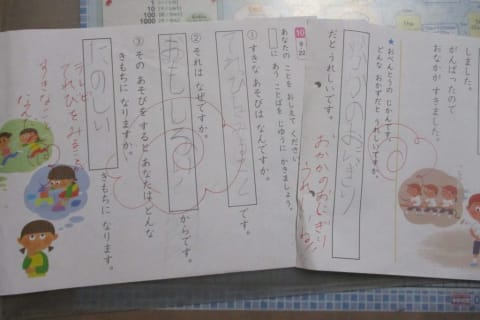 しました。
がんばったので
おなかが すきました。
★おべんとうの じかんです。
どんな おかずだと うれしいですか。
のおにぎり
だと うれしいです。
おかかのおにぎり
10
9/22
あなたの ことを おしえて ください。
に あう ことばを じゆうに かきましょう。
① すきな あそびは なんですか。
てれびをみること
です。
② それは なぜですか。
おもしろい
からです。
③ その あそびを すると あなたは どんな
きもちに なりますか。
たのしい
きもちに なります。
テレビ
てれびを みることが
すきなこと
100
1000